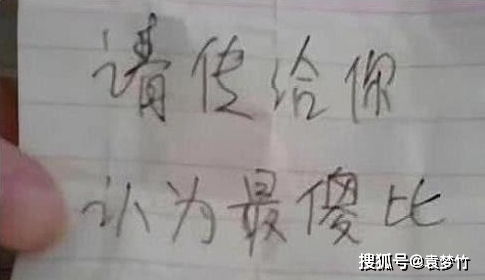 请传给你
认为最傻比
搜狐号@袁梦竹